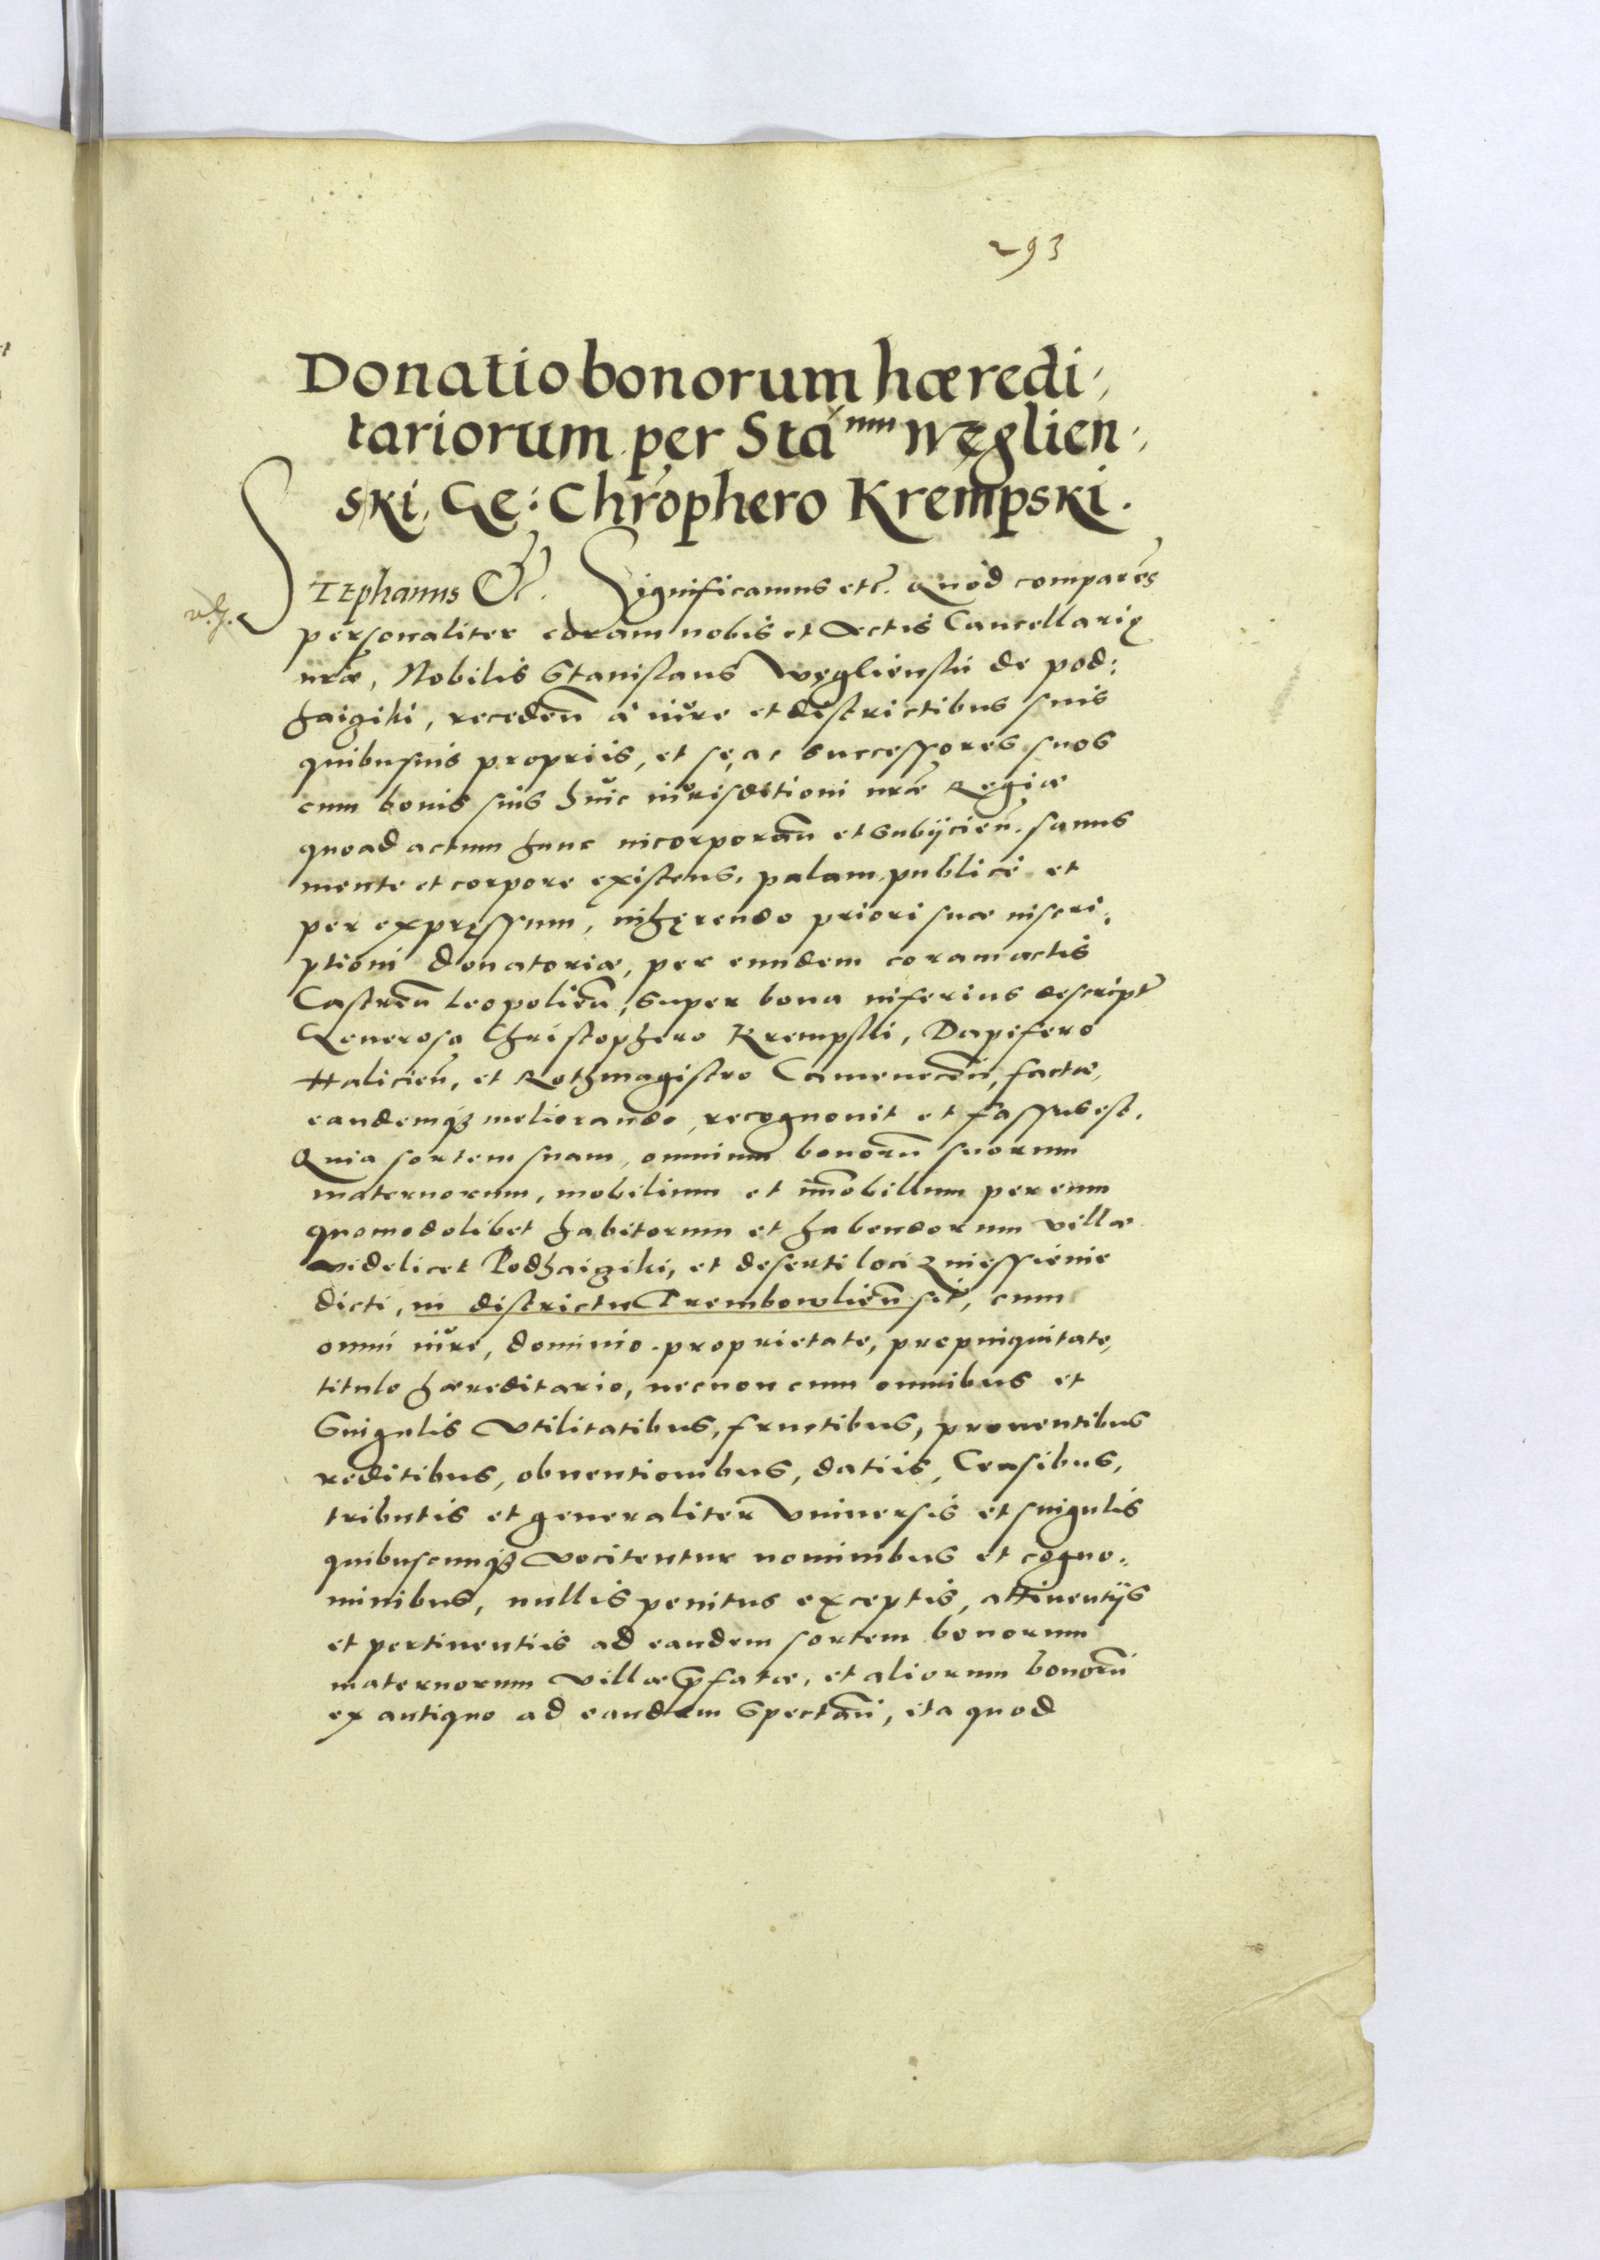 293
Donatio bonorum hæredi,
tariorum per Sta^num Węglien,
ski, Ge: Chrophero Krempski.
Stephanus Etc. Significamus etc. Quod comparens
personaliter coram nobis et Actis Cancellariæ
nræ, Nobilis Stanislaus Węglienski de pod:
haiziki, receden à iure et districtibus suis
quibusuis propriis, et se, ac successores suos
cum bonis suis huic iurisditioni nræ Regiæ
quoad actum hunc incorporan et subijcien. sanus
mente et corpore existens, palam publicè et
per expręssum, inhęrendo priori suæ inscri:
ptioni donatoriæ, per eundem coram actis
Castren Leopolien, super bona inferius descript
Generoso Christophero Krempski, Dapifero
Halicien, et Rothmagistro Camenecen, factæ,
eandemq meliorando, recognouit et fassus est.
Quia sortem suam, omnium bonoru suorum
maternorum, mobilium et imobilium per eum
quomodolibet habitorum et habendorum villæ
videlicet Podhaiziki, et deserti loci Zniessienie
dicti, in districtu Trembowlien sit, cum
omni iure, dominio. proprietate, propinquitate,
titulo hæreditario, necnon cum omnibus et
Singulis Vtilitatibus, fructibus, prouentibus
reditibus, obuentionibus, datiis, Censibus,
tributis et generaliter Vniuersis et singulis
quibuscunq Vocitentur nominibus et cogno:
minibus, nullis penitus exceptis, attinentijs
et pertinentiis ad eandem sortem bonorum
maternorum Villæ pfatæ, et aliorum bonoru
ex antiquo ad eandem Spectan, ita quod